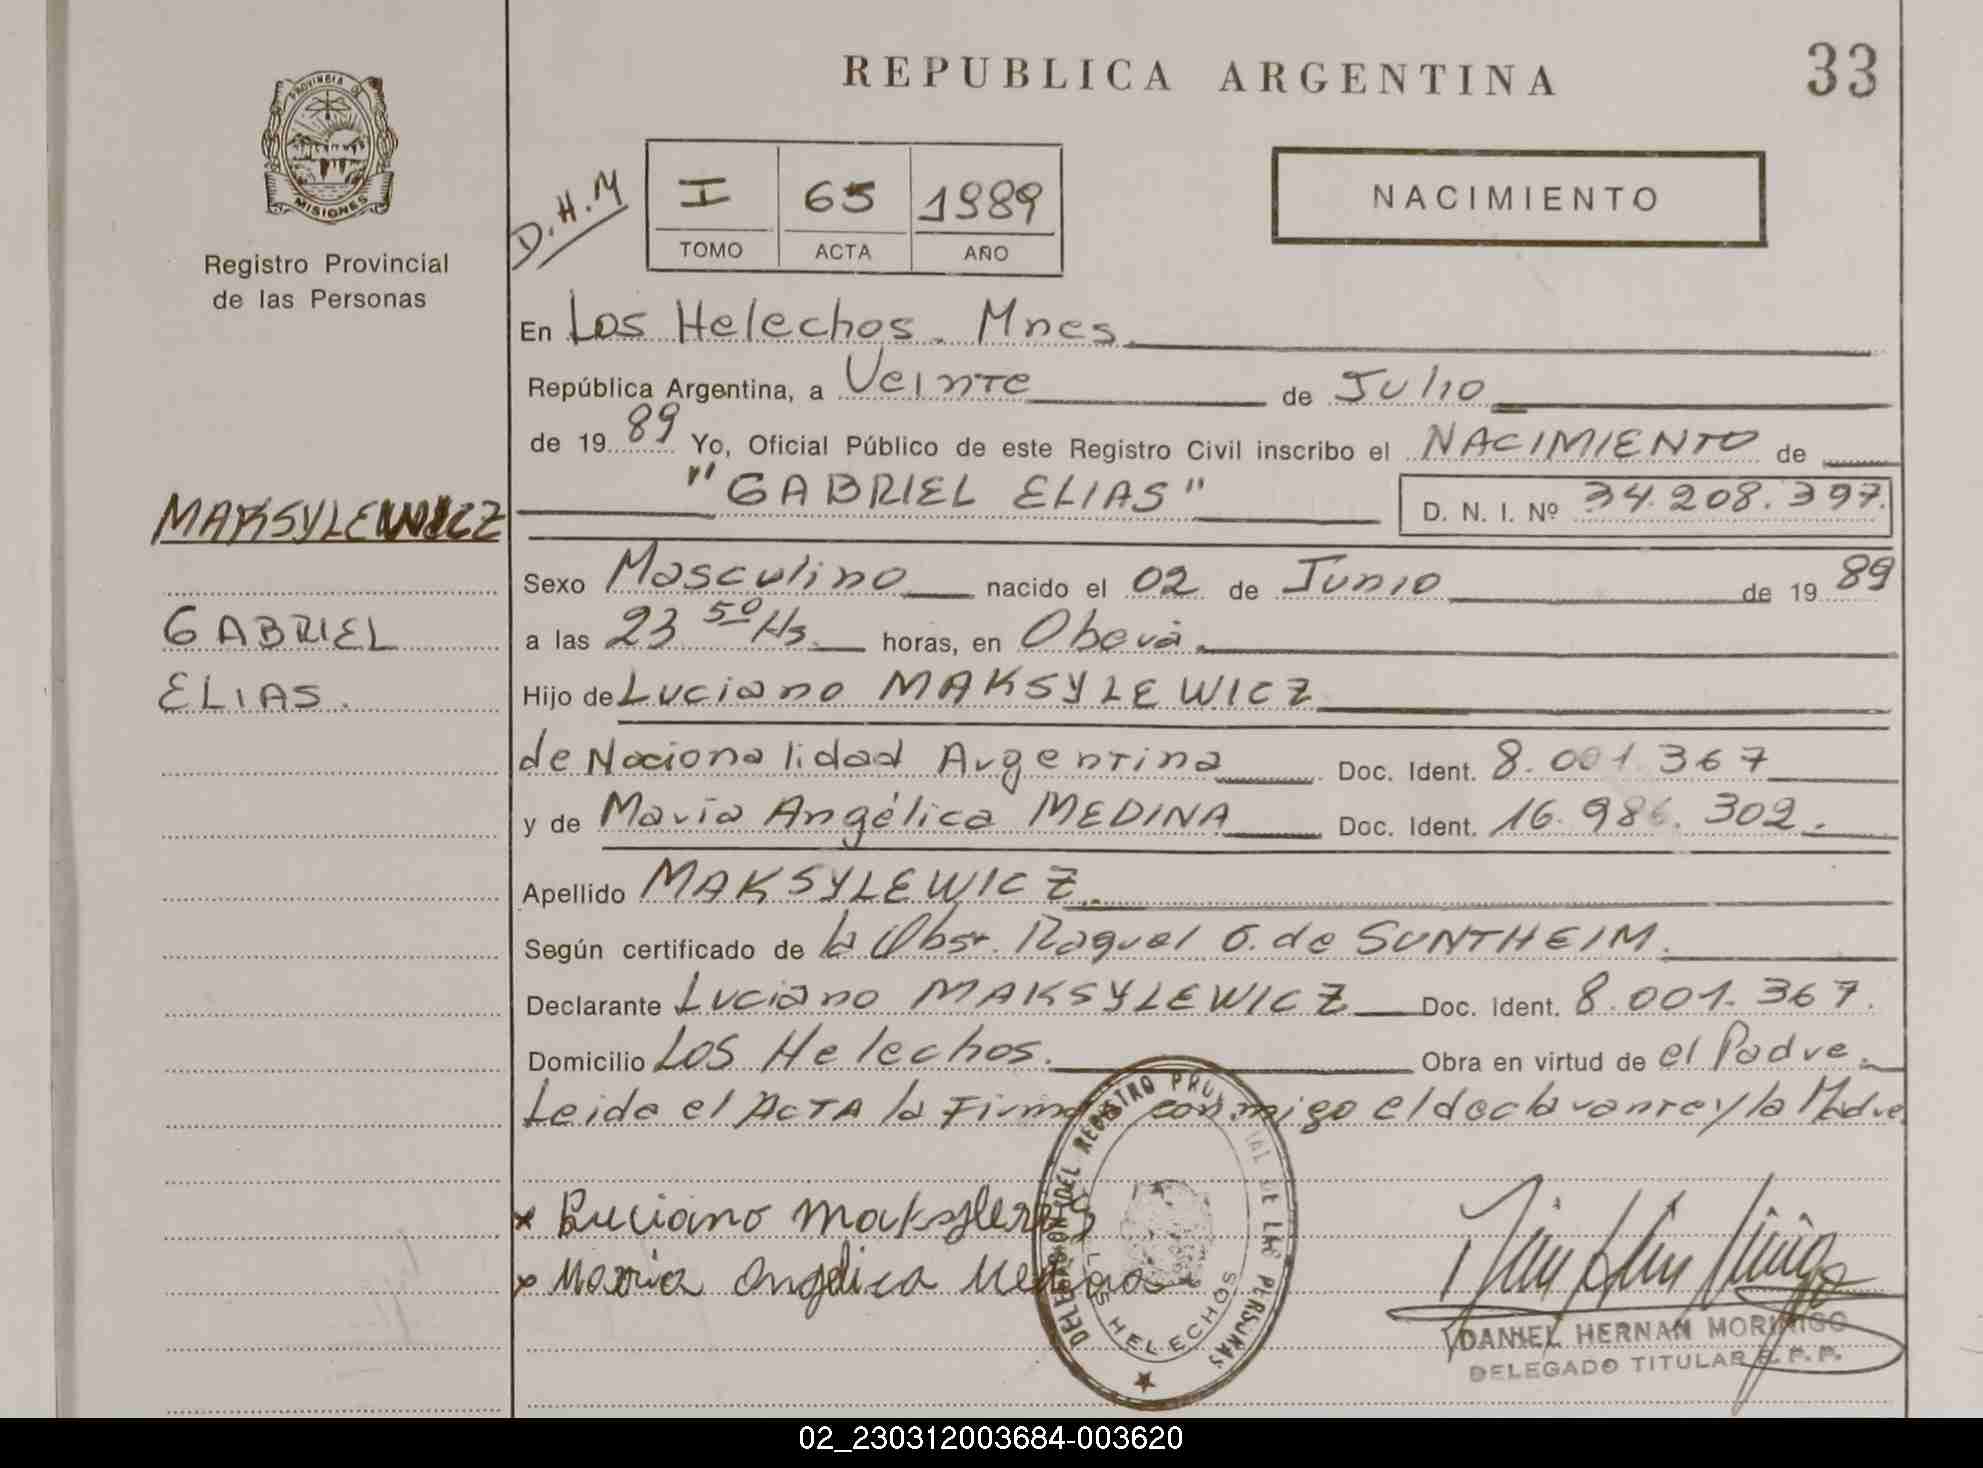 REPUBLICA ARGENTINA
33
PROVINCIA DE
MISIONES
Registro Provincial
de las Personas
D.H.M
I 65 1989
TOMO ACTA AÑO
NACIMIENTO
En Los Helechos. Mnes.
República Argentina, a Veinte de Julio
de 19 89 Yo, Oficial Público de este Registro Civil inscribo el NACIMIENTO de
"GABRIEL ELIAS" D. N. I. Nº 34.208.397.
MAKSYLEWICZ
GABRIEL
ELIAS.
Sexo Masculino nacido el 02 de Junio de 19 89
a las 23 50 Hs. horas, en Oberá.
Hijo de Luciano MAKSYLEWICZ
de Nacionalidad Argentina Doc. Ident. 8.001.367
y de María Angélica MEDINA Doc. Ident. 16.986.302.
Apellido MAKSYLEWICZ.
Según certificado de la Obst. Raquel G. de SUNTHEIM.
Declarante Luciano MAKSYLEWICZ Doc. Ident. 8.001.367.
Domicilio LOS Helechos. Obra en virtud de el Padre.
Leida el ACTA la Firma conmigo el declarante y la Madre
x Luciano
x Maria Angelica Medina
DELEGACION DEL REGISTRO PROVINCIAL DE LAS PERSONAS
LOS HELECHOS
DANIEL HERNAN MORINIGO
DELEGADO TITULAR R. P. P.
02_230312003684-003620